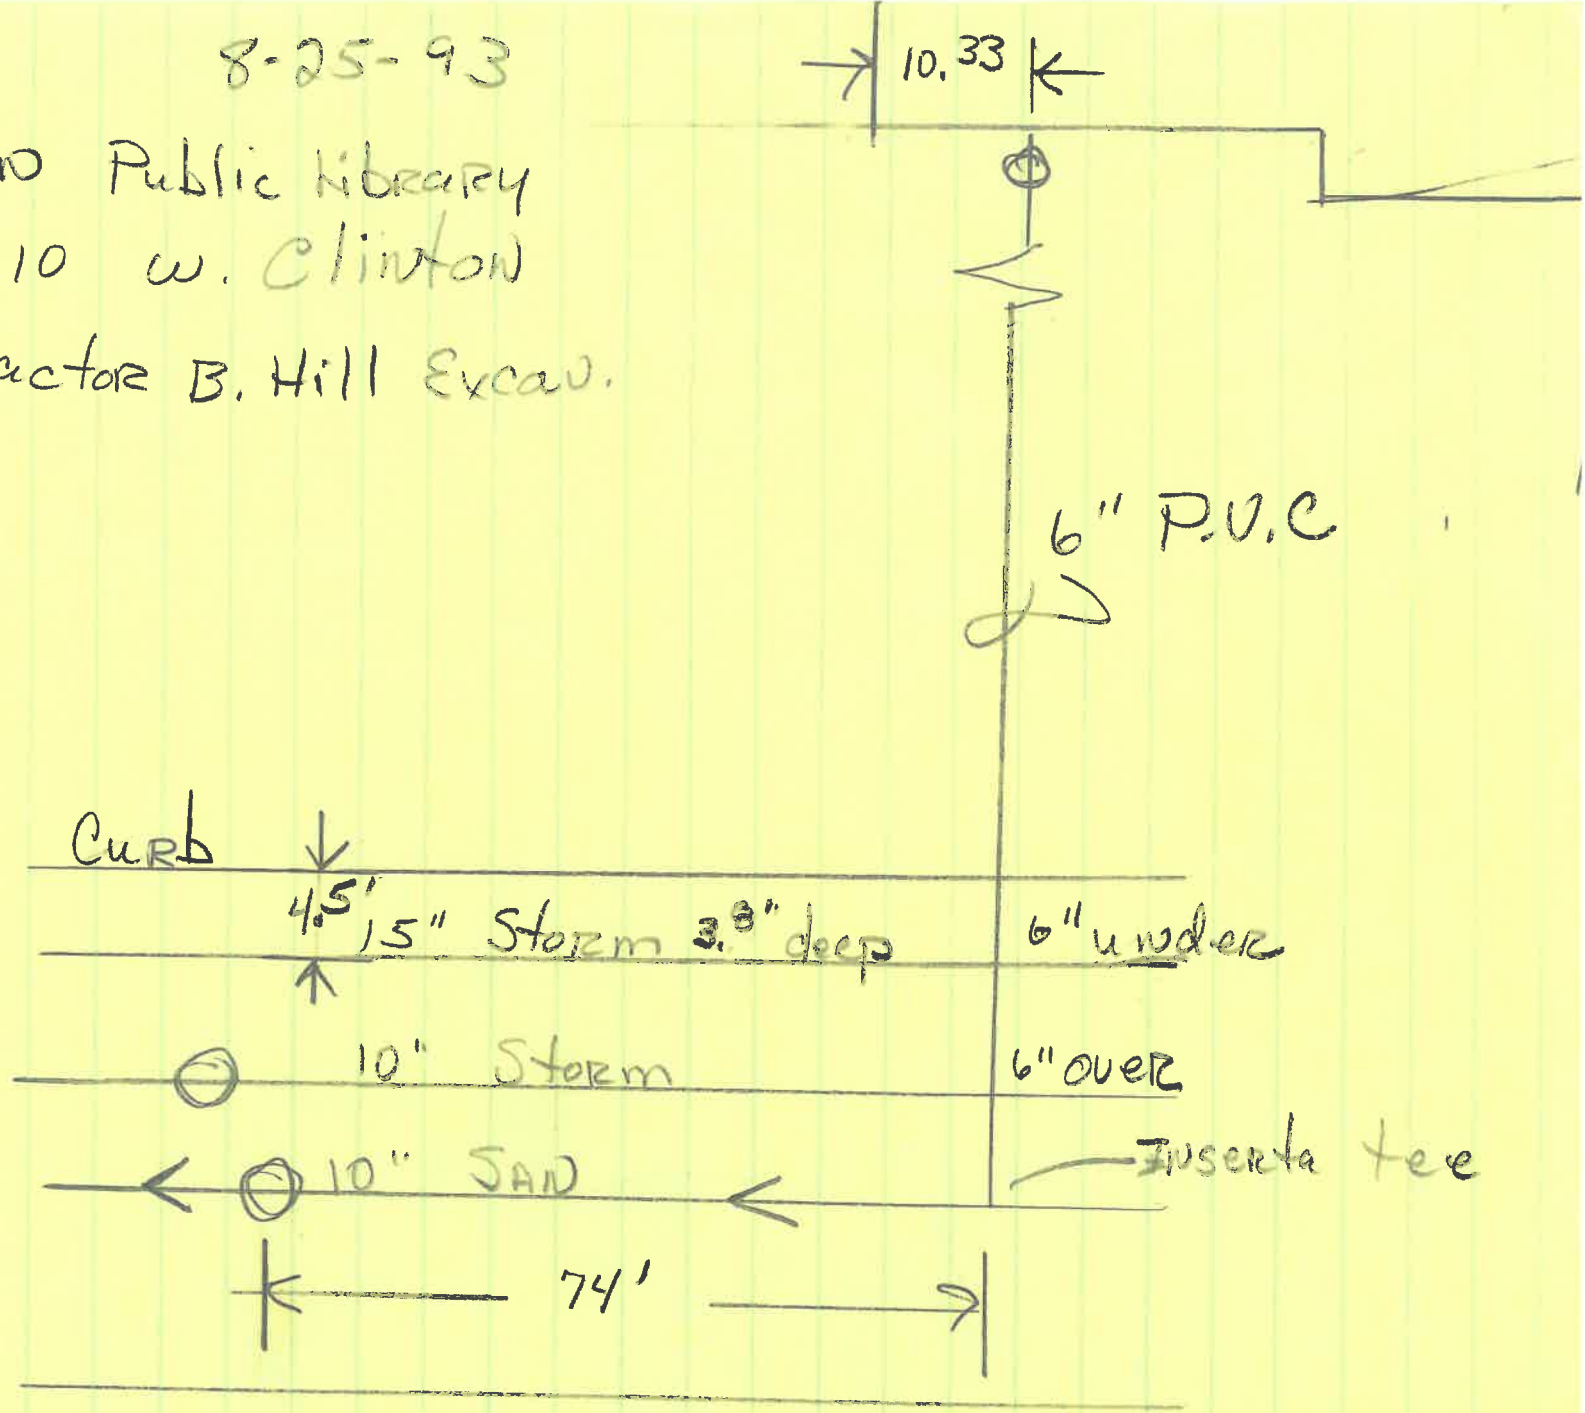 8-25-93
10.33
Public Library
10 W. Clinton
actor B. Hill Excav.
6" P.V.C
Curb
4.5'
15" Storm 3.8" deep
6" under
10" Storm
6" over
10" SAN
Inserta tee
74'